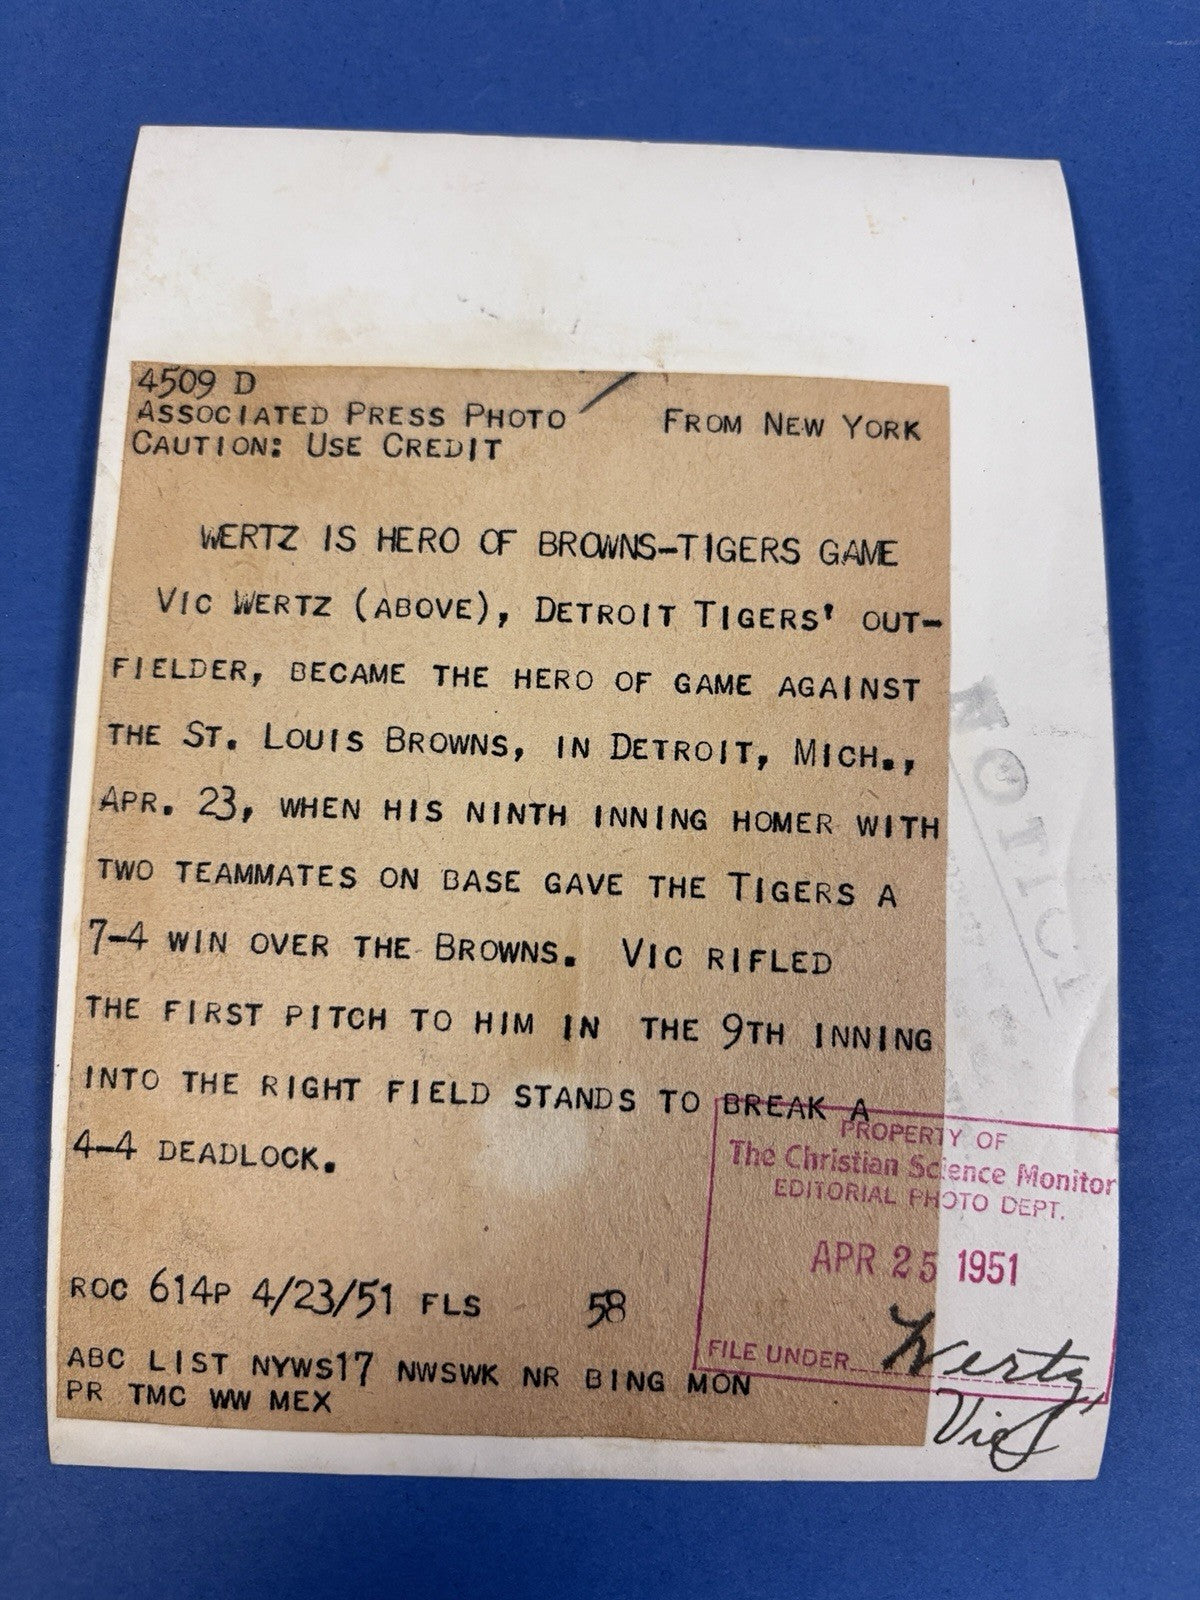 4509 D
ASSOCIATED PRESS PHOTO FROM NEW YORK
CAUTION: USE CREDIT
WERTZ IS HERO OF BROWNS-TIGERS GAME
VIC WERTZ (ABOVE), DETROIT TIGERS' OUT-
FIELDER, BECAME THE HERO OF GAME AGAINST
THE ST. LOUIS BROWNS, IN DETROIT, MICH.,
APR. 23, WHEN HIS NINTH INNING HOMER WITH
TWO TEAMMATES ON BASE GAVE THE TIGERS A
7-4 WIN OVER THE BROWNS. VIC RIFLED
THE FIRST PITCH TO HIM IN THE 9TH INNING
INTO THE RIGHT FIELD STANDS TO BREAK A
4-4 DEADLOCK.
ROC 614P 4/23/51 FLS 58
ABC LIST NYWS17 NWSWK NR BING MON
PR TMC WW MEX
NOTIC
PROPERTY OF
The Christian Science Monitor
EDITORIAL PHOTO DEPT.
APR 25 1951
FILE UNDER Wertz,
Vic